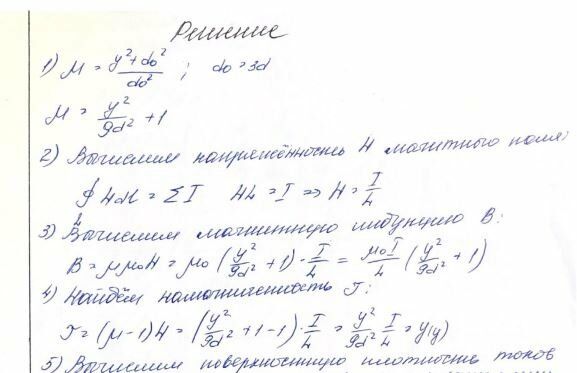 Решение
1) μ = (y² + do²)/do² ; do = 3d
μ = y²/9d² + 1
2) Вычислим напряжённость H магнитного поля:
∮ Hdl = ΣI HL = I => H = I/L
L
3) Вычислим магнитную индукцию B:
B = μμ₀H = μ₀ (y²/9d² + 1) · I/L = μ₀I/L (y²/9d² + 1)
4) Найдём намагниченность J:
J = (μ-1)H = (y²/9d² + 1 - 1) · I/L = y²/9d² I/L = y(y)
5) Вычислим поверхностную плотность токов